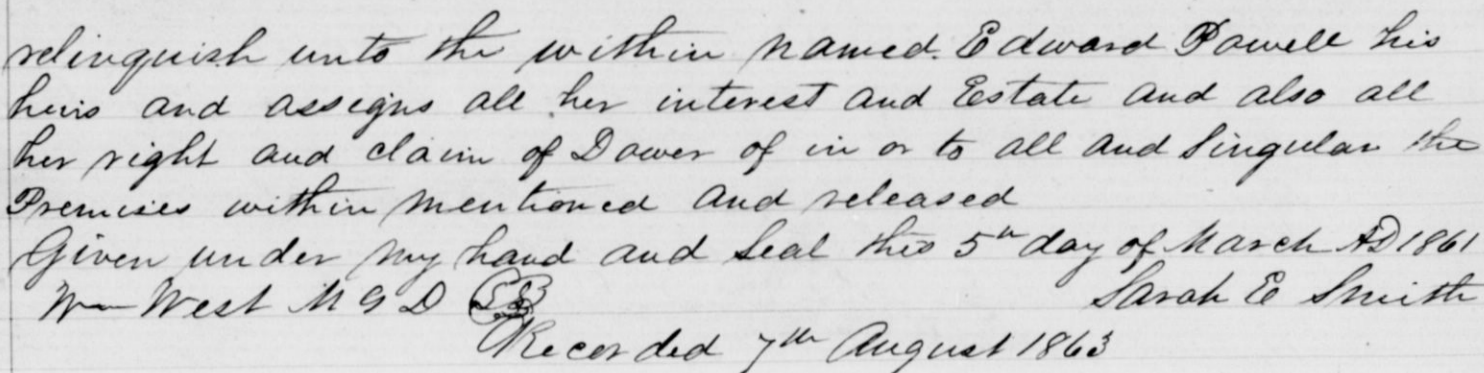 relinquish unto the within named. Edward Powell his
heirs and assigns all her interest and Estate and also all
her right and claim of Dower of in or to all and Singular the
Premises within mentioned and released
Given under my hand and Seal this 5th day of March AD 1861
Wm West M G D LS Sarah E Smith
Recorded 7th August 1863